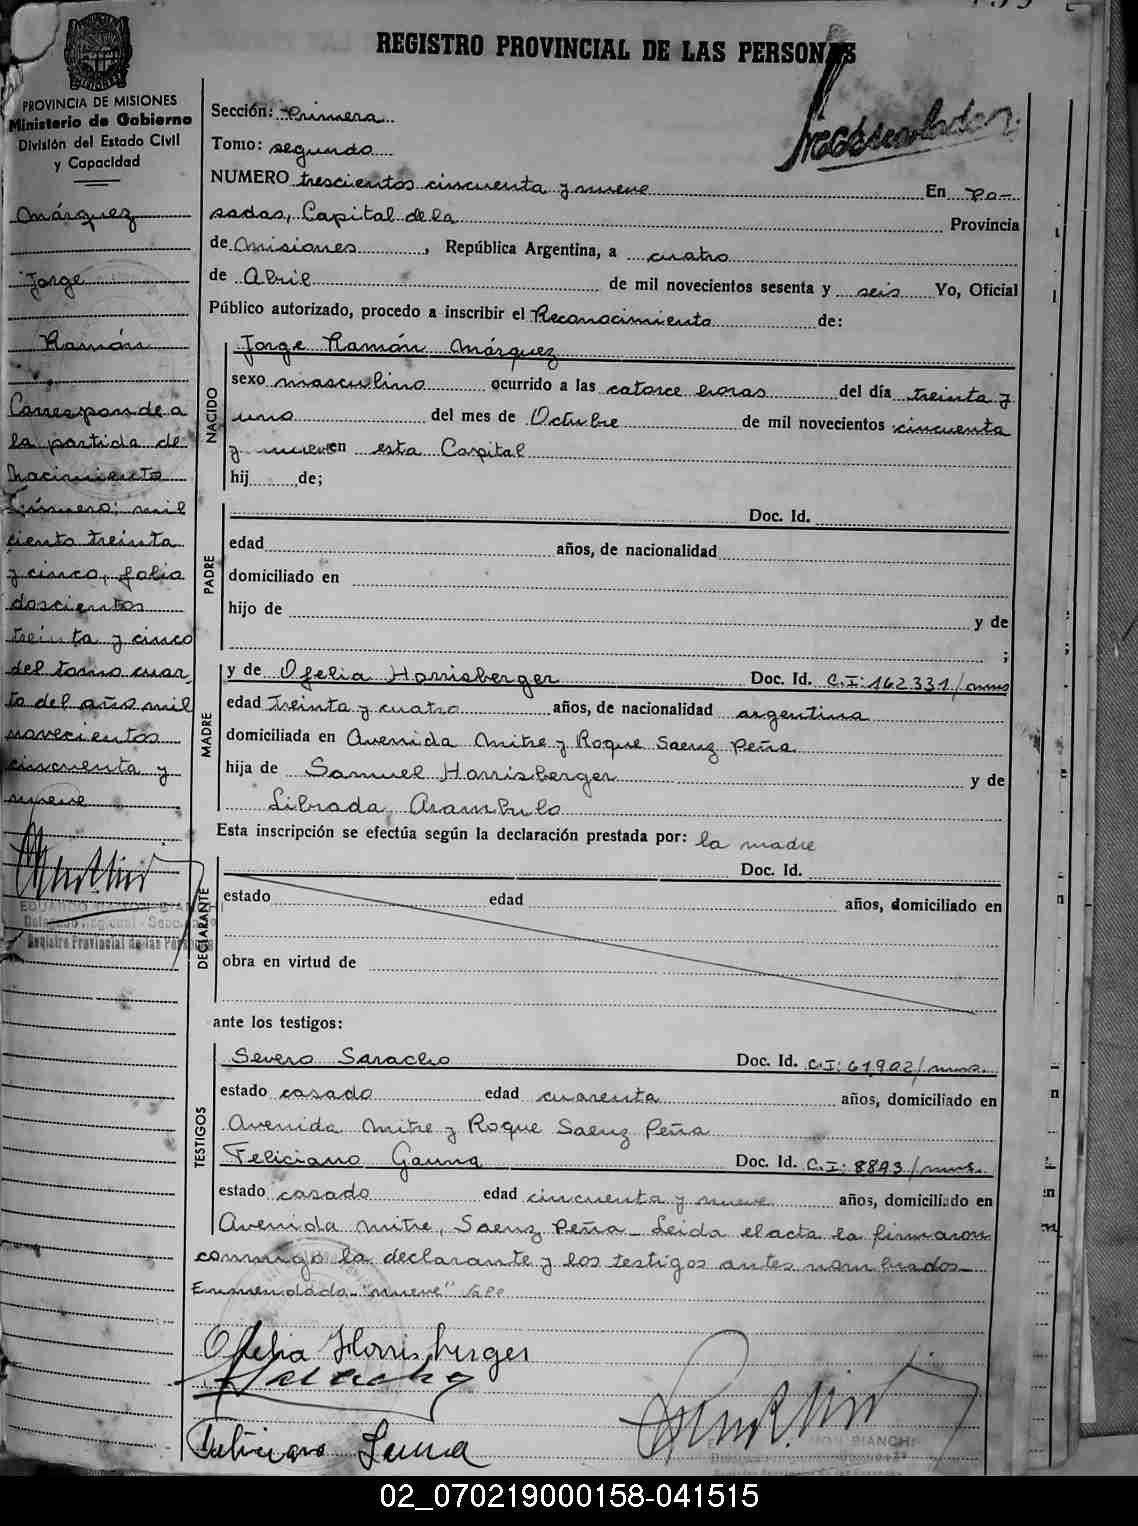 REGISTRO PROVINCIAL DE LAS PERSONAS
PROVINCIA DE MISIONES
Ministerio de Gobierno
División del Estado Civil
y Capacidad
Márquez
Jorge
Ramón
Corresponde a
la partida de
Nacimiento
Número: mil
ciento treinta
y cinco, folio
doscientos
treinta y cinco
del tomo cuar
to del año mil
novecientos
cincuenta y
nueve
Delegado Regional
Registro Provincial de las Personas
Sección: Primera
Tomo: segundo
NUMERO trescientos cincuenta y nueve En Po-
sadas, Capital de la Provincia
de Misiones, República Argentina, a cuatro
de Abril de mil novecientos sesenta y seis Yo, Oficial
Público autorizado, procedo a inscribir el Reconocimiento de:
NACIDO
Jorge Ramón Márquez
sexo masculino ocurrido a las catorce horas del día treinta y
uno del mes de Octubre de mil novecientos cincuenta
y nueve en esta Capital
hij de;
PADRE
Doc. Id.
edad años, de nacionalidad
domiciliado en
hijo de y de
;
MADRE
y de Ofelia Horrisberger Doc. Id. C.I: 162.331/mnes
edad treinta y cuatro años, de nacionalidad argentina
domiciliada en Avenida Mitre y Roque Saenz Peña
hija de Samuel Horrisberger y de
Librada Arambulo
Esta inscripción se efectúa según la declaración prestada por: la madre
DECLARANTE
Doc. Id.
estado edad años, domiciliado en
obra en virtud de
ante los testigos:
TESTIGOS
Severo Saracho Doc. Id. C.I: 61.902/mns.
estado casado edad cuarenta años, domiciliado en
Avenida Mitre y Roque Saenz Peña
Feliciano Gauna Doc. Id. C.I: 8893/mns.
estado casado edad cincuenta y nueve años, domiciliado en
Avenida Mitre, Saenz Peña. Leida el acta la firmaron
conmigo la declarante y los testigos antes nombrados
Enmendado "nueve" Vale
Ofelia Horrisberger
Saracho
BIANCHI
02_070219000158-041515